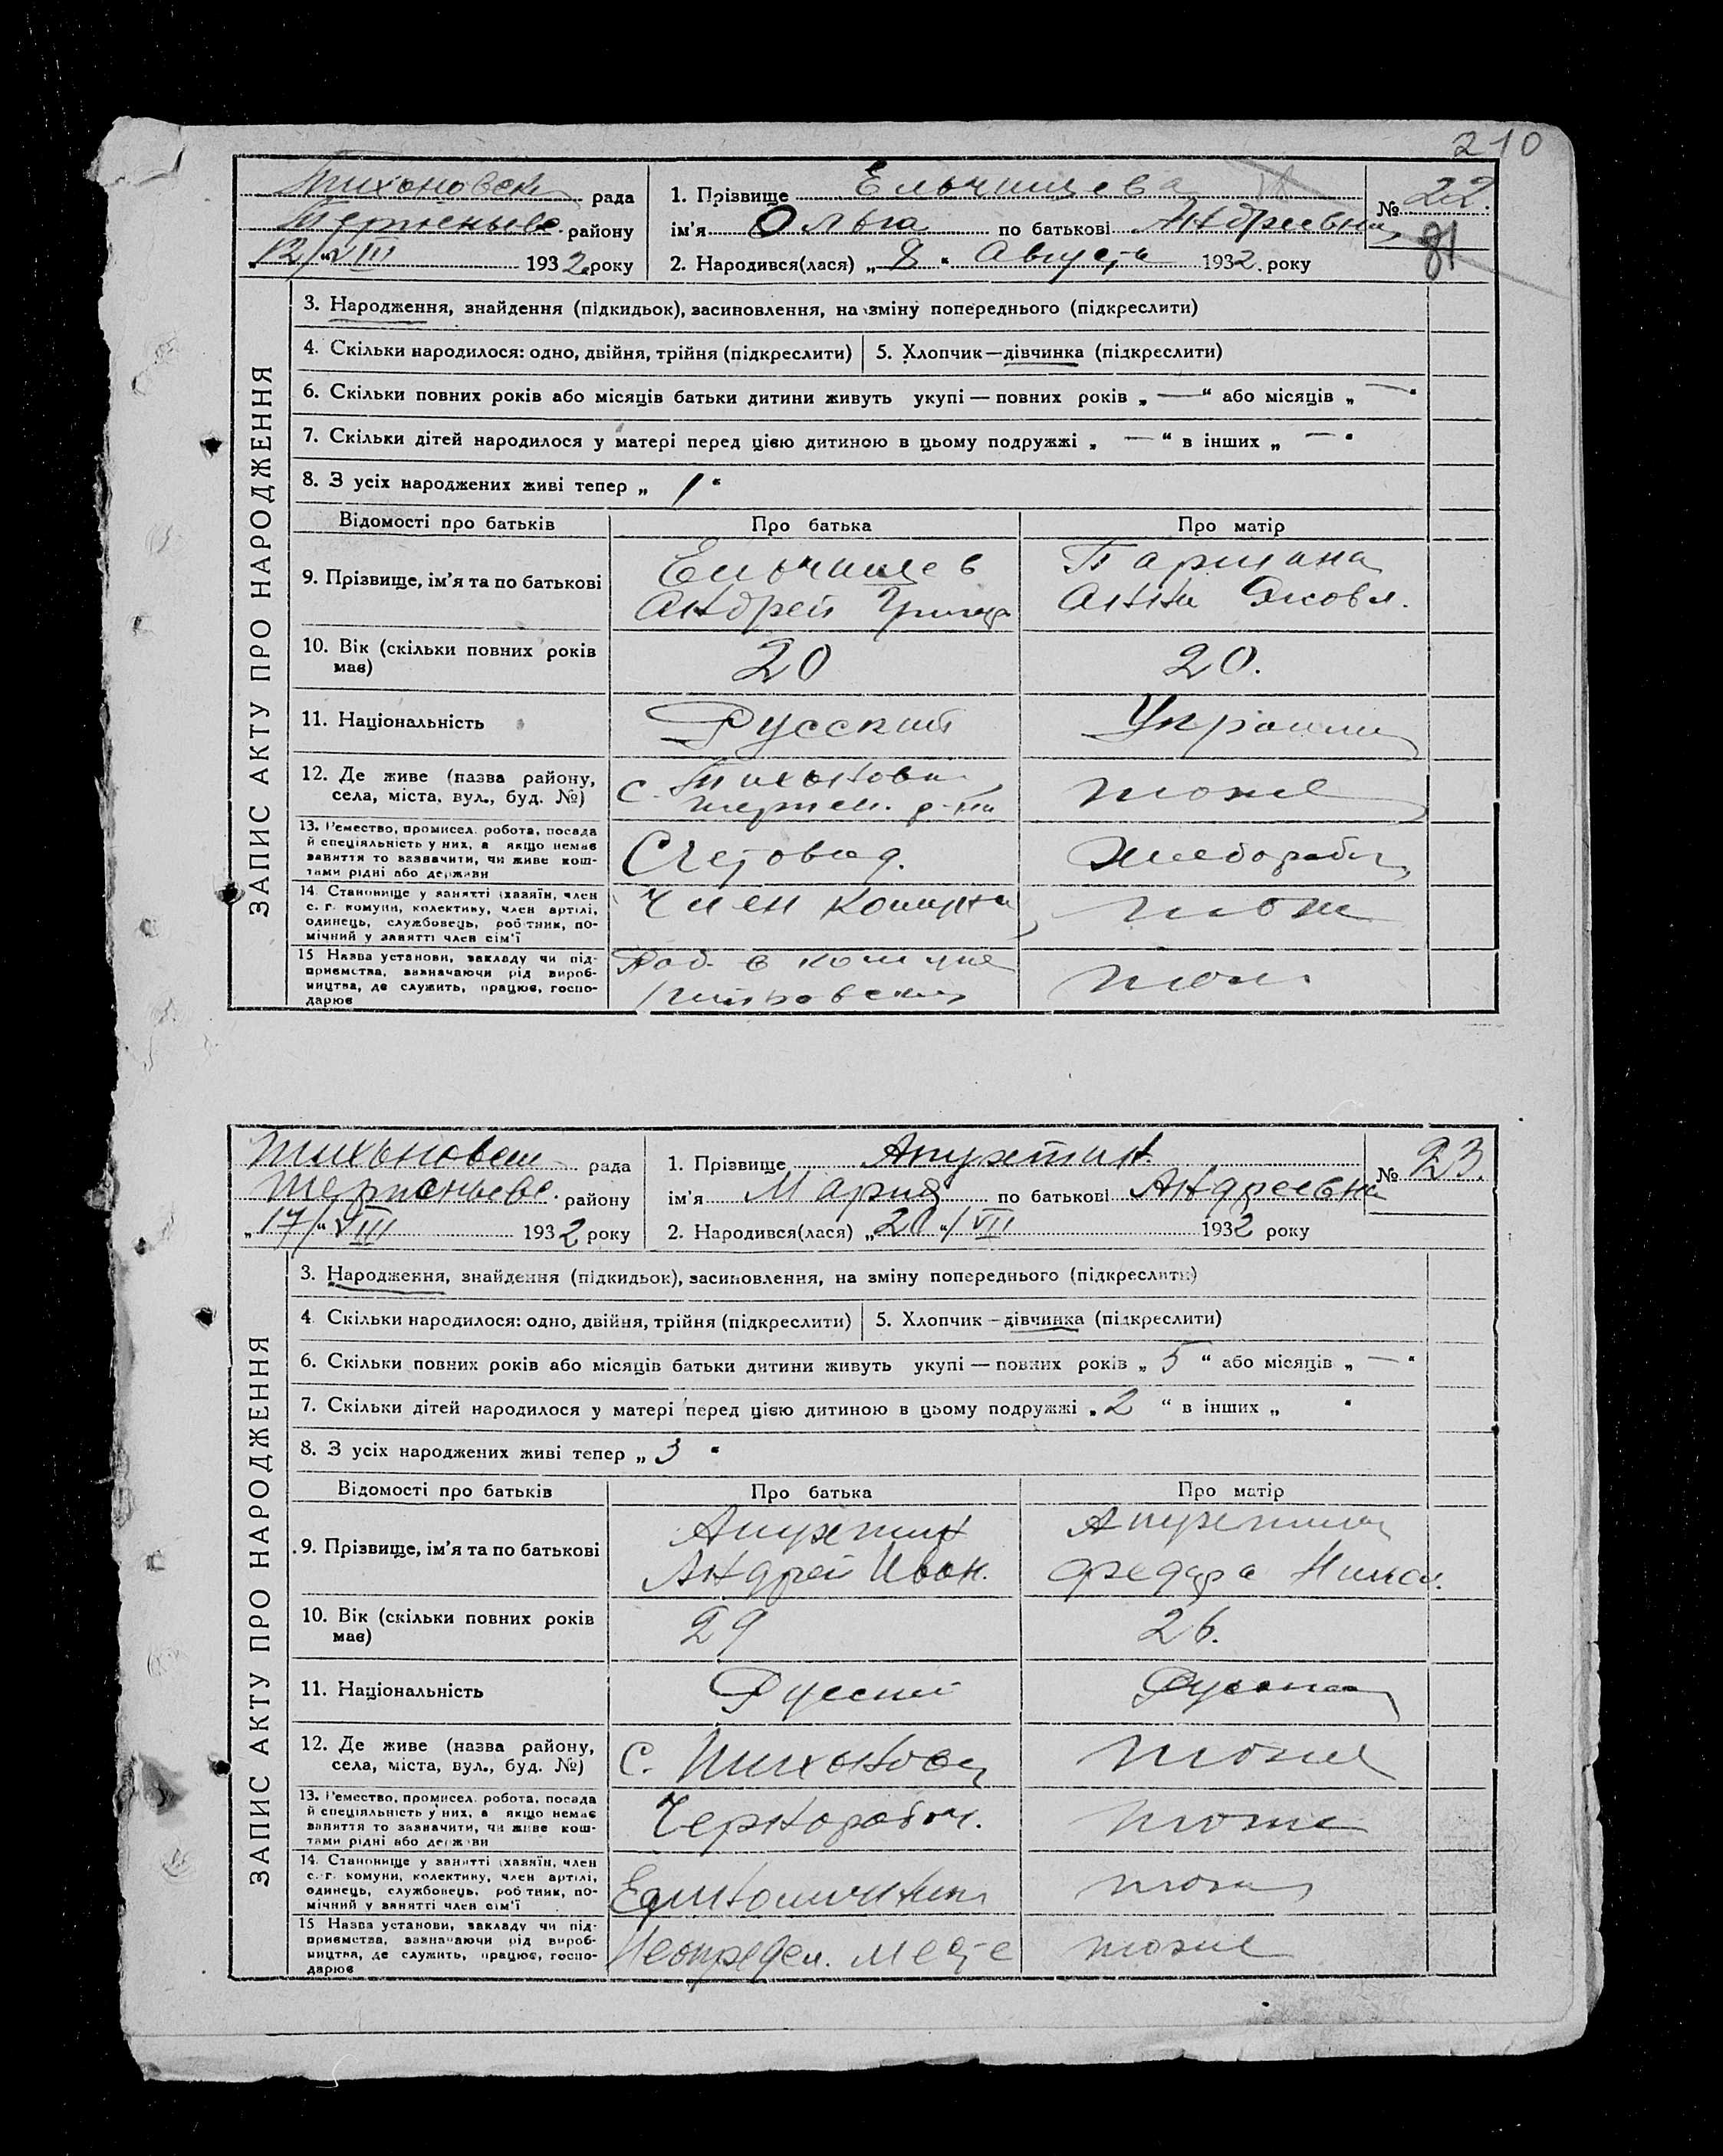 210
Тихоновск рада
1. Прізвище Ельчищева
№ 22.
район
ім'я Ольга по батькові Андреевна
81
12/VIII 1932 року
2. Народився(лася) „8“ Августа 1932. року
ЗАПИС АКТУ ПРО НАРОДЖЕННЯ
3. Народження, знайдення (підкидьок), засиновлення, на зміну попереднього (підкреслити)
4. Скільки народилося: одно, двійня, трійня (підкреслити) 5. Хлопчик—дівчинка (підкреслити)
6. Скільки повних років або місяців батьки дитини живуть укупі — повних років „—“ або місяців „—“
7. Скільки дітей народилося у матері перед цією дитиною в цьому подружжі „—“ в інших „—“
8. З усіх народжених живі тепер „1“
Відомості про батьків Про батька Про матір
9. Прізвище, ім'я та по батькові
Ельчищев
Андрей
Анна Яковл.
10. Вік (скільки повних років має) 20 20.
11. Національність Русский
12. Де живе (назва району, села, міста, вул., буд. №)
с. р-на
тоже
13. Ремество, промисел, робота, посада й спеціяльність у них, а якщо немає заняття то зазначити, чи живе коштами рідні або держави
Счетовод.
14. Становище у занятті (хазяїн, член с.-г. комуни, колективу, член артілі, одинець, службовець, робітник, помічний у занятті член сім'ї
Член коммуны
тоже
15 Назва установи, закладу чи підприємства, зазначаючи рід виробництва, де служить, працює, господарює
в комуне
тож.
Тихоновск рада
1. Прізвище Апухтин.
№ 23.
району
ім'я Мария по батькові Андреевна
„17/“VIII 1932 року
2. Народився(лася) /VII 1932 року
ЗАПИС АКТУ ПРО НАРОДЖЕННЯ
3. Народження, знайдення (підкидьок), засиновлення, на зміну попереднього (підкреслити)
4. Скільки народилося: одно, двійня, трійня (підкреслити) 5. Хлопчик—дівчинка (підкреслити)
6. Скільки повних років або місяців батьки дитини живуть укупі — повних років „5“ або місяців „—“
7. Скільки дітей народилося у матері перед цією дитиною в цьому подружжі „2“ в інших „ “
8. З усіх народжених живі тепер „3“
Відомості про батьків Про батька Про матір
9. Прізвище, ім'я та по батькові
Апухтин
Андрей Иван.
Апухтина
10. Вік (скільки повних років має) 29 26.
11. Національність Русский Русская
12. Де живе (назва району, села, міста, вул., буд. №)
с. Тихоновка
тоже
13. Ремество, промисел, робота, посада й спеціяльність у них, а якщо немає заняття то зазначити, чи живе коштами рідні або держави
Чернорабоч.
тоже
14. Становище у занятті (хазяїн, член с.-г. комуни, колективу, член артілі, одинець, службовець, робітник, помічний у занятті член сім'ї
Единоличник
тоже
15 Назва установи, закладу чи підприємства, зазначаючи рід виробництва, де служить, працює, господарює
Неопредел. месте
тоже